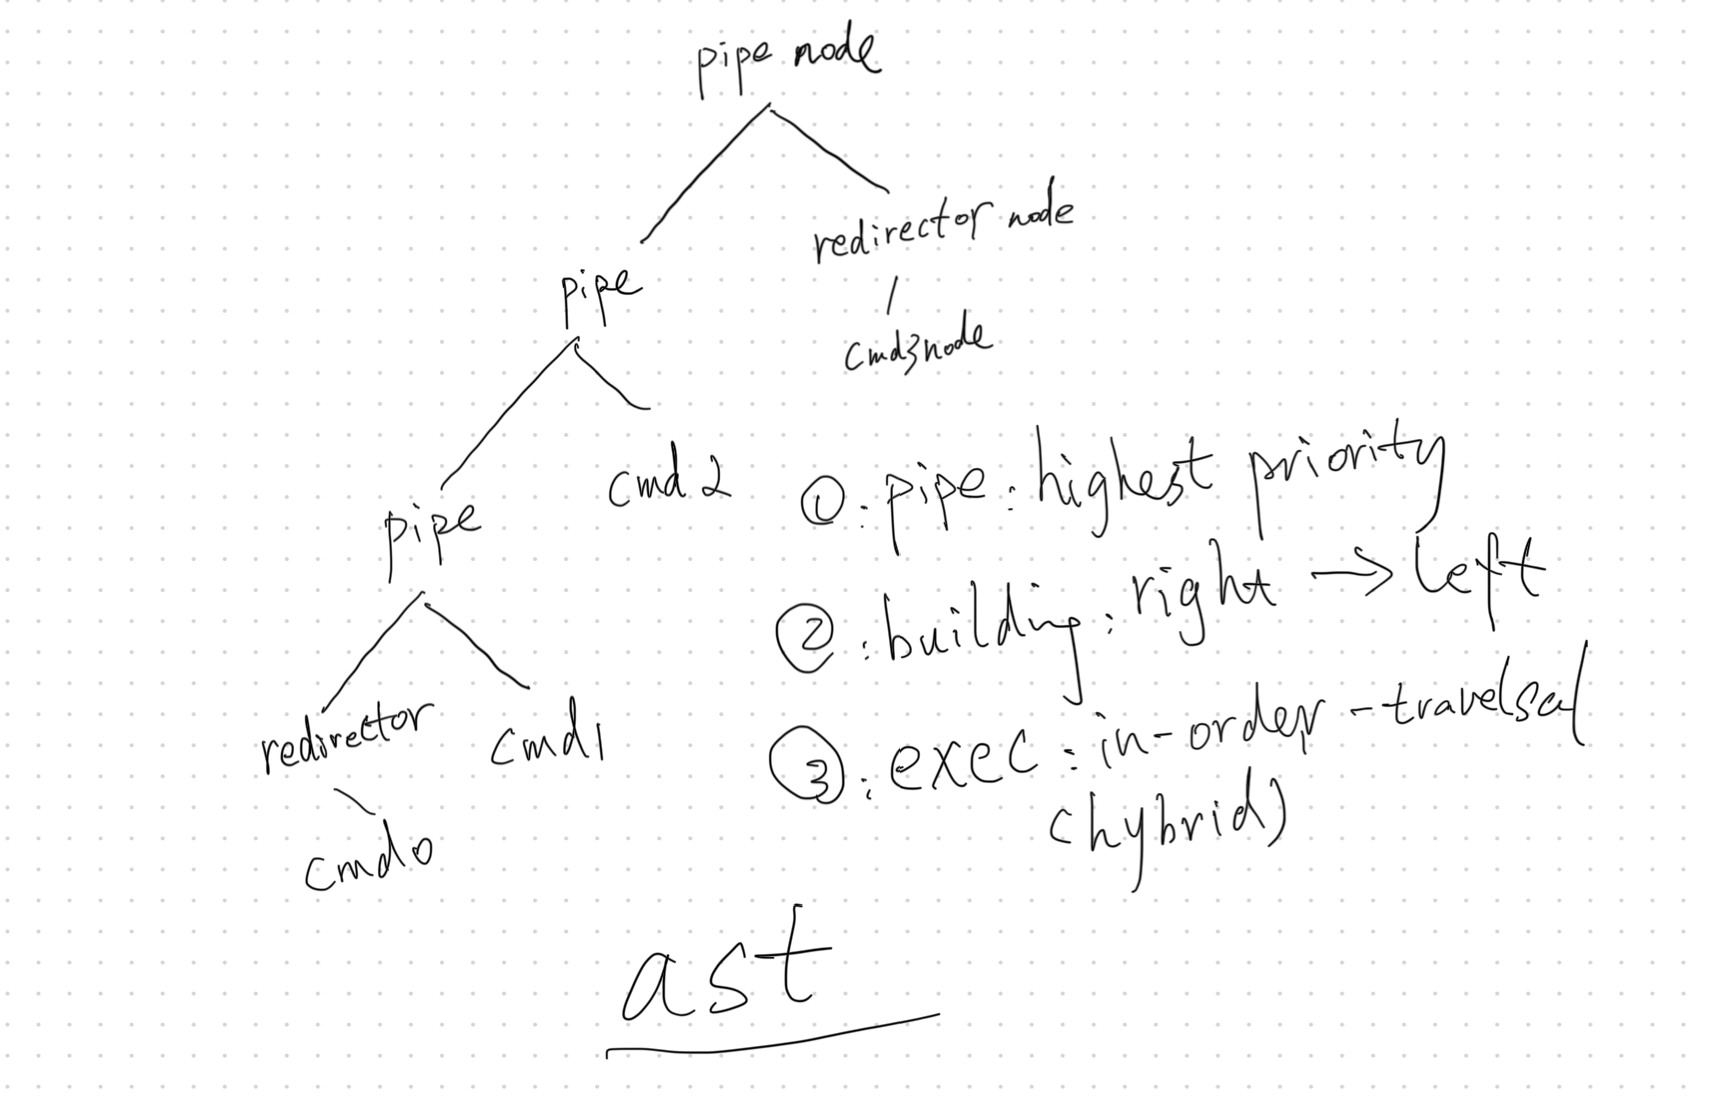 pipe node
redirector node
pipe
cmd3node
cmd 2
pipe
redirector
cmd1
cmd0
①: pipe: highest priority
②: building: right → left
③: exec: in-order-travelsal
(hybrid)
ast